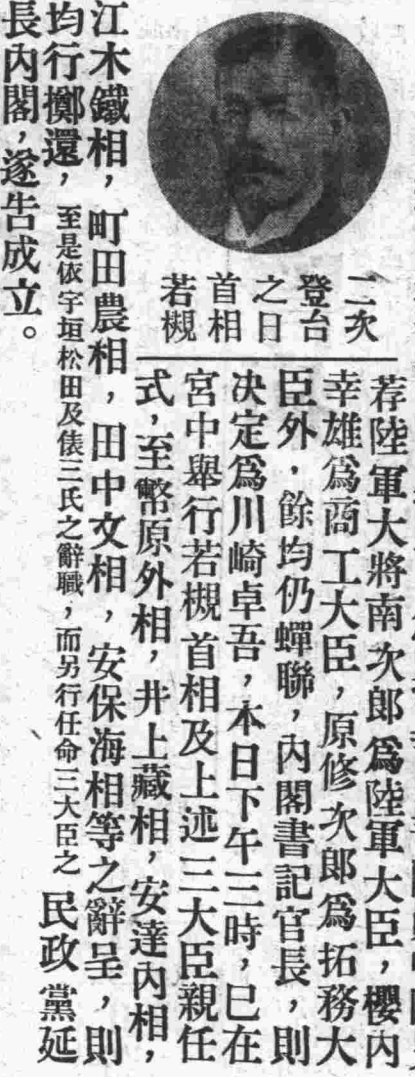 二次
登台
之日
首相
若槻
荐陸軍大將南次郎爲陸軍大臣，櫻內
幸雄爲商工大臣，原修次郎爲拓務大
臣外．餘均仍蟬聯，內閣書記官長，則
決定爲川崎卓吾，本日下午三時，已在
宮中舉行若槻首相及上述三大臣親任
式，至幣原外相，井上藏相，安達內相，
江木鐵相，町田農相，田中文相，安保海相等之辭呈，則
均行擲還，至是依宇垣松田及俵三氏之辭職，而另行任命三大臣之民政黨延
長內閣，遂告成立。